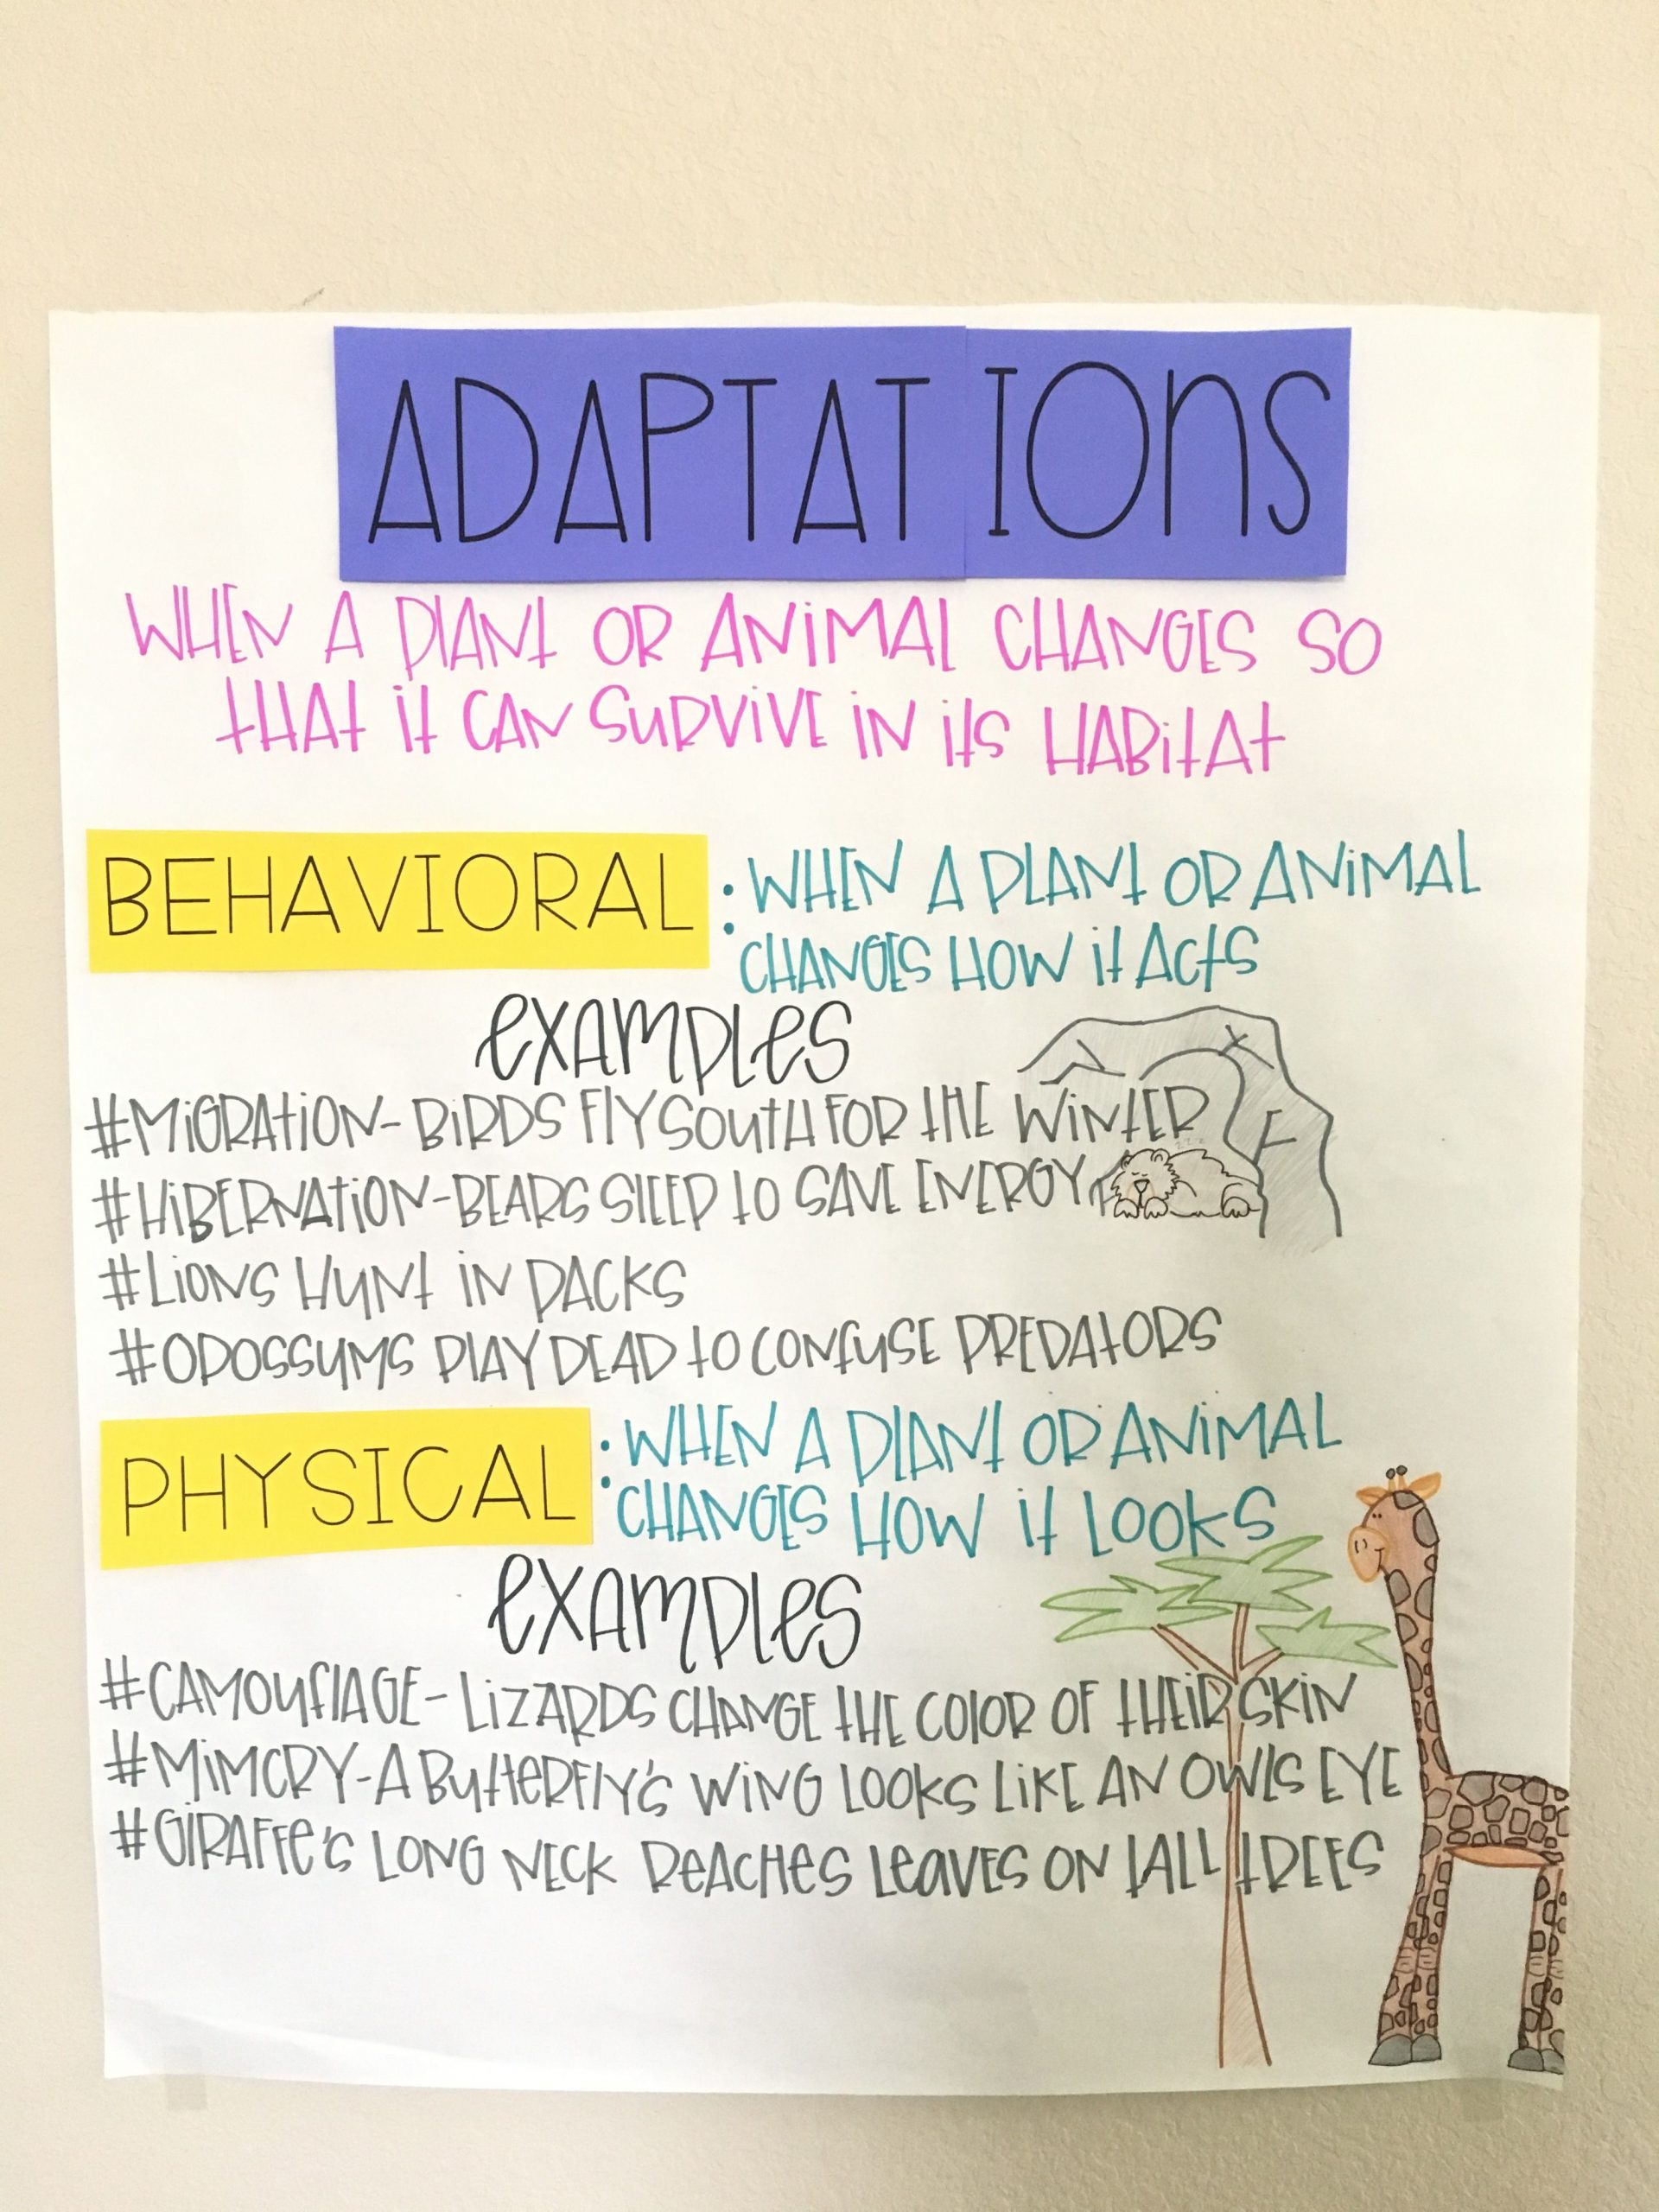 ADAPTATIONS
WHEN A PLANT OR ANIMAL CHANGES SO
THAT IT CAN SURVIVE IN ITS HABITAT
BEHAVIORAL : WHEN A PLANT OR ANIMAL
CHANGES HOW IT ACTS
EXAMPLES
#MIGRATION- BIRDS FLY SOUTH FOR THE WINTER
#HIBERNATION-BEARS SLEEP TO SAVE ENERGY
#LIONS HUNT IN PACKS
#OPOSSUMS PLAY DEAD TO CONFUSE PREDATORS
PHYSICAL : WHEN A PLANT OR ANIMAL
CHANGES HOW IT LOOKS
EXAMPLES
#CAMOUFLAGE- LIZARDS CHANGE THE COLOR OF THEIR SKIN
#MIMCRY-A BUTTERFLY'S WING LOOKS LIKE AN OWLS EYE
#GIRAFFE'S LONG NECK REACHES LEAVES ON TALL TREES